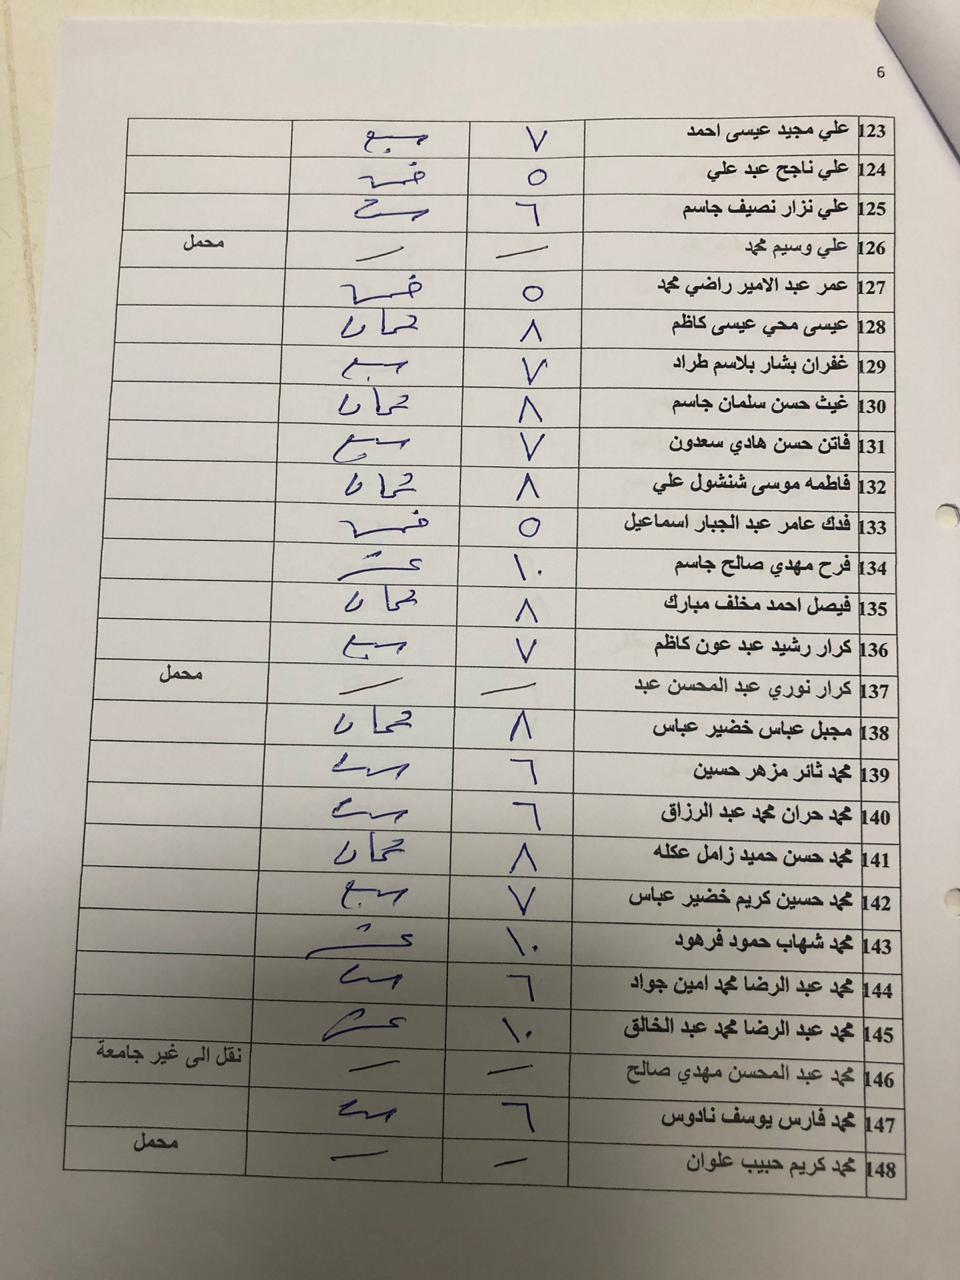 6
123 علي مجيد عيسى احمد ٧ سبع
124 علي ناجح عبد علي ٥ خمسه
125 علي نزار نصيف جاسم ٦ ست
126 علي وسيم محمد — — محمل
127 عمر عبد الامير راضي محمد ٥ خمسه
128 عيسى محي عيسى كاظم ٨ ثمان
129 غفران بشار بلاسم طراد ٧ سبع
130 غيث حسن سلمان جاسم ٨ ثمان
131 فاتن حسن هادي سعدون ٧ سبع
132 فاطمه موسى شنشول علي ٨ ثمان
133 فدك عامر عبد الجبار اسماعيل ٥ خمسه
134 فرح مهدي صالح جاسم ١٠ عشر
135 فيصل احمد مخلف مبارك ٨ ثمان
136 كرار رشيد عبد عون كاظم ٧ سبع
137 كرار نوري عبد المحسن عبد — — محمل
138 مجبل عباس خضير عباس ٨ ثمان
139 محمد ثائر مزهر حسين ٦ ست
140 محمد حران محمد عبد الرزاق ٦ ست
141 محمد حسن حميد زامل عكله ٨ ثمان
142 محمد حسين كريم خضير عباس ٧ سبع
143 محمد شهاب حمود فرهود ١٠ عشر
144 محمد عبد الرضا محمد امين جواد ٦ ست
145 محمد عبد الرضا محمد عبد الخالق ١٠ عشر
146 محمد عبد المحسن مهدي صالح — — نقل الى غير جامعة
147 محمد فارس يوسف نادوس ٦ ست
148 محمد كريم حبيب علوان — — محمل